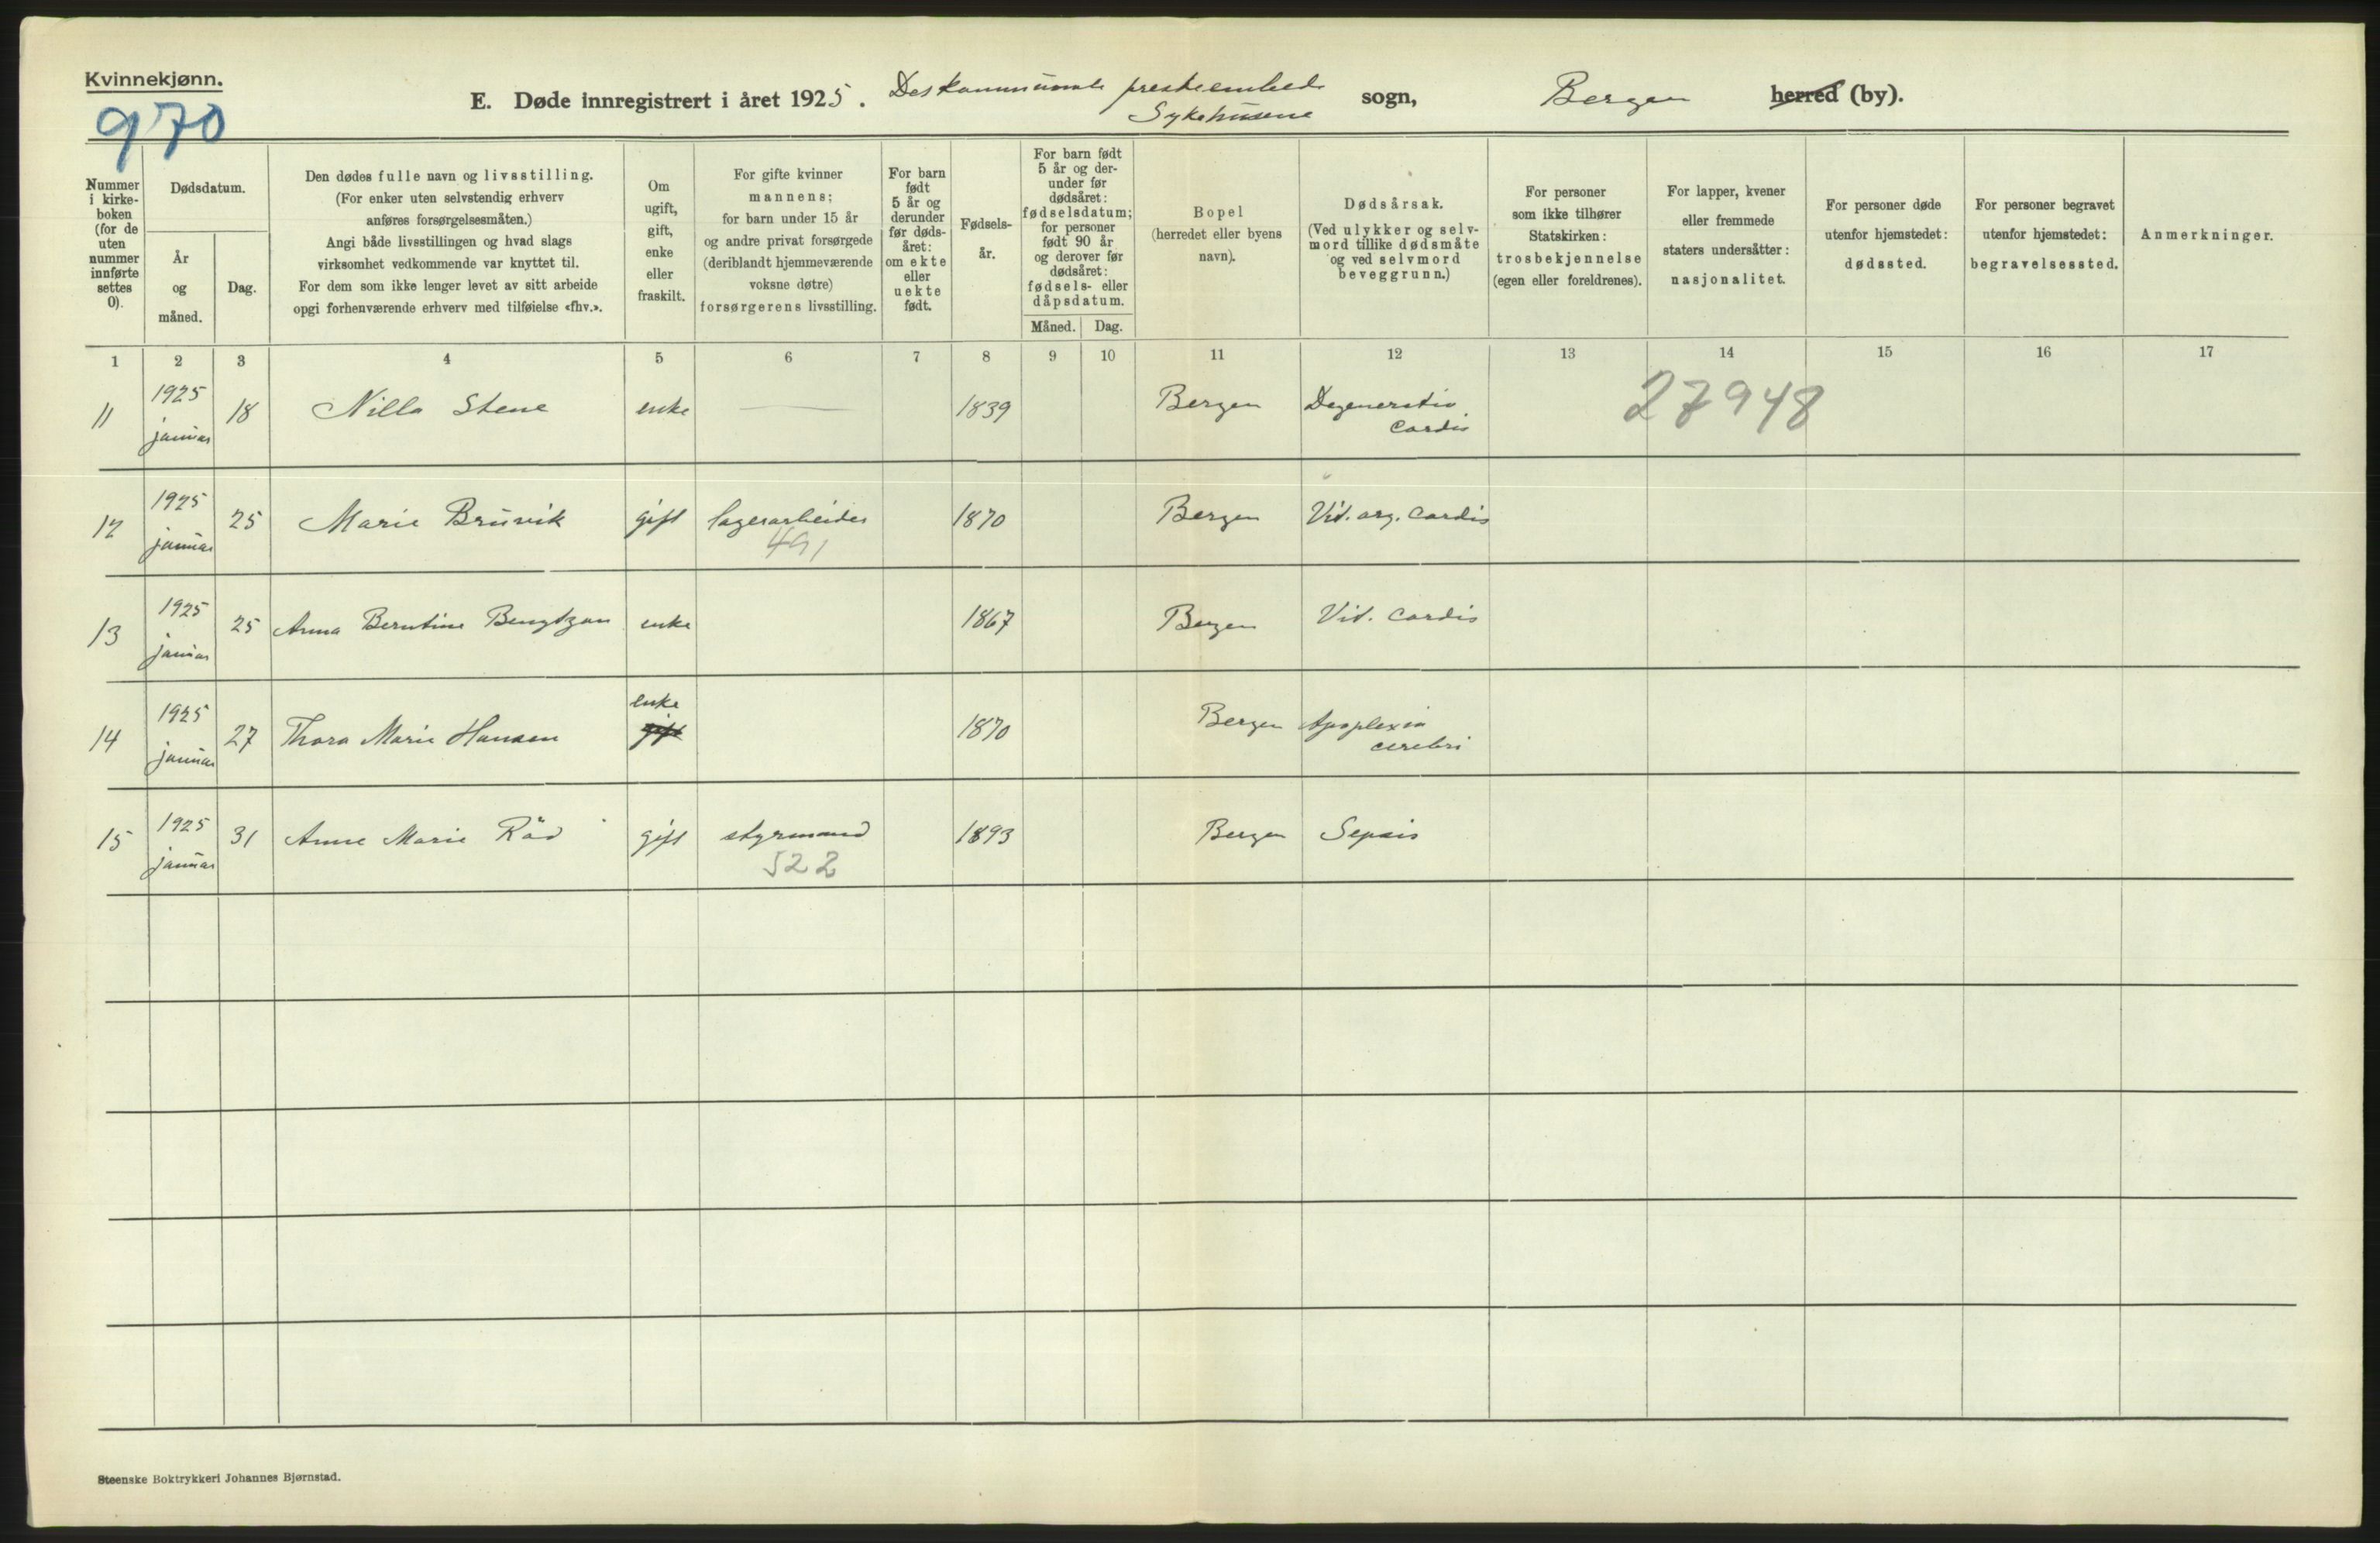 Kvinnekjønn.
970
E. Døde innregistrert i året 1925. Det kommunale presteembede sogn, Bergen herred (by).
Sykehusene
Nummer i kirke-boken (for de uten nummer innførte settes 0).
Dødsdatum.
År og måned.
Dag.
Den dødes fulle navn og livsstilling.
(For enker uten selvstendig erhverv
anføres forsørgelsesmåten.)
Angi både livsstillingen og hvad slags
virksomhet vedkommende var knyttet til.
For dem som ikke lenger levet av sitt arbeide
opgi forhenværende erhverv med tilføielse «fhv.».
Om
ugift,
gift,
enke
eller
fraskilt.
For gifte kvinner
mannens;
for barn under 15 år
og andre privat forsørgede
(deriblandt hjemmeværende
voksne døtre)
forsørgerens livsstilling.
For barn
født
5 år og
derunder
før døds-
året:
om ekte
eller
uekte
født.
Fødsels-
år.
For barn født
5 år og der-
under før
dødsåret:
fødselsdatum;
for personer
født 90 år
og derover før
dødsåret:
fødsels- eller
dåpsdatum.
Måned. Dag.
Bopel
(herredet eller byens
navn).
Dødsårsak.
(Ved ulykker og selv-
mord tillike dødsmåte
og ved selvmord
beveggrunn.)
For personer
som ikke tilhører
Statskirken:
trosbekjennelse
(egen eller foreldrenes).
For lapper, kvener
eller fremmede
staters undersåtter:
nasjonalitet.
For personer døde
utenfor hjemstedet:
dødssted.
For personer begravet
utenfor hjemstedet:
begravelsessted.
Anmerkninger.
1 2 3 4 5 6 7 8 9 10 11 12 13 14 15 16 17
11 1925 januar 18 Nilla Stene enke — 1839 Bergen Degeneratio Cordis 27948
12 1925 januar 25 Marie Bruvik gift lagerarbeider 1870 Bergen Vit. org. Cordis
491
13 1925 januar 25 Anna Berntine Bengtzon enke 1867 Bergen Vit. Cordis
14 1925 januar 27 Thora Marie Hansen enke gift 1870 Bergen Apoplexia cerebri
15 1925 januar 31 Anne Marie Råd gift styrmand 1893 Bergen Sepsis
522
Steenske Boktrykkeri Johannes Bjørnstad.